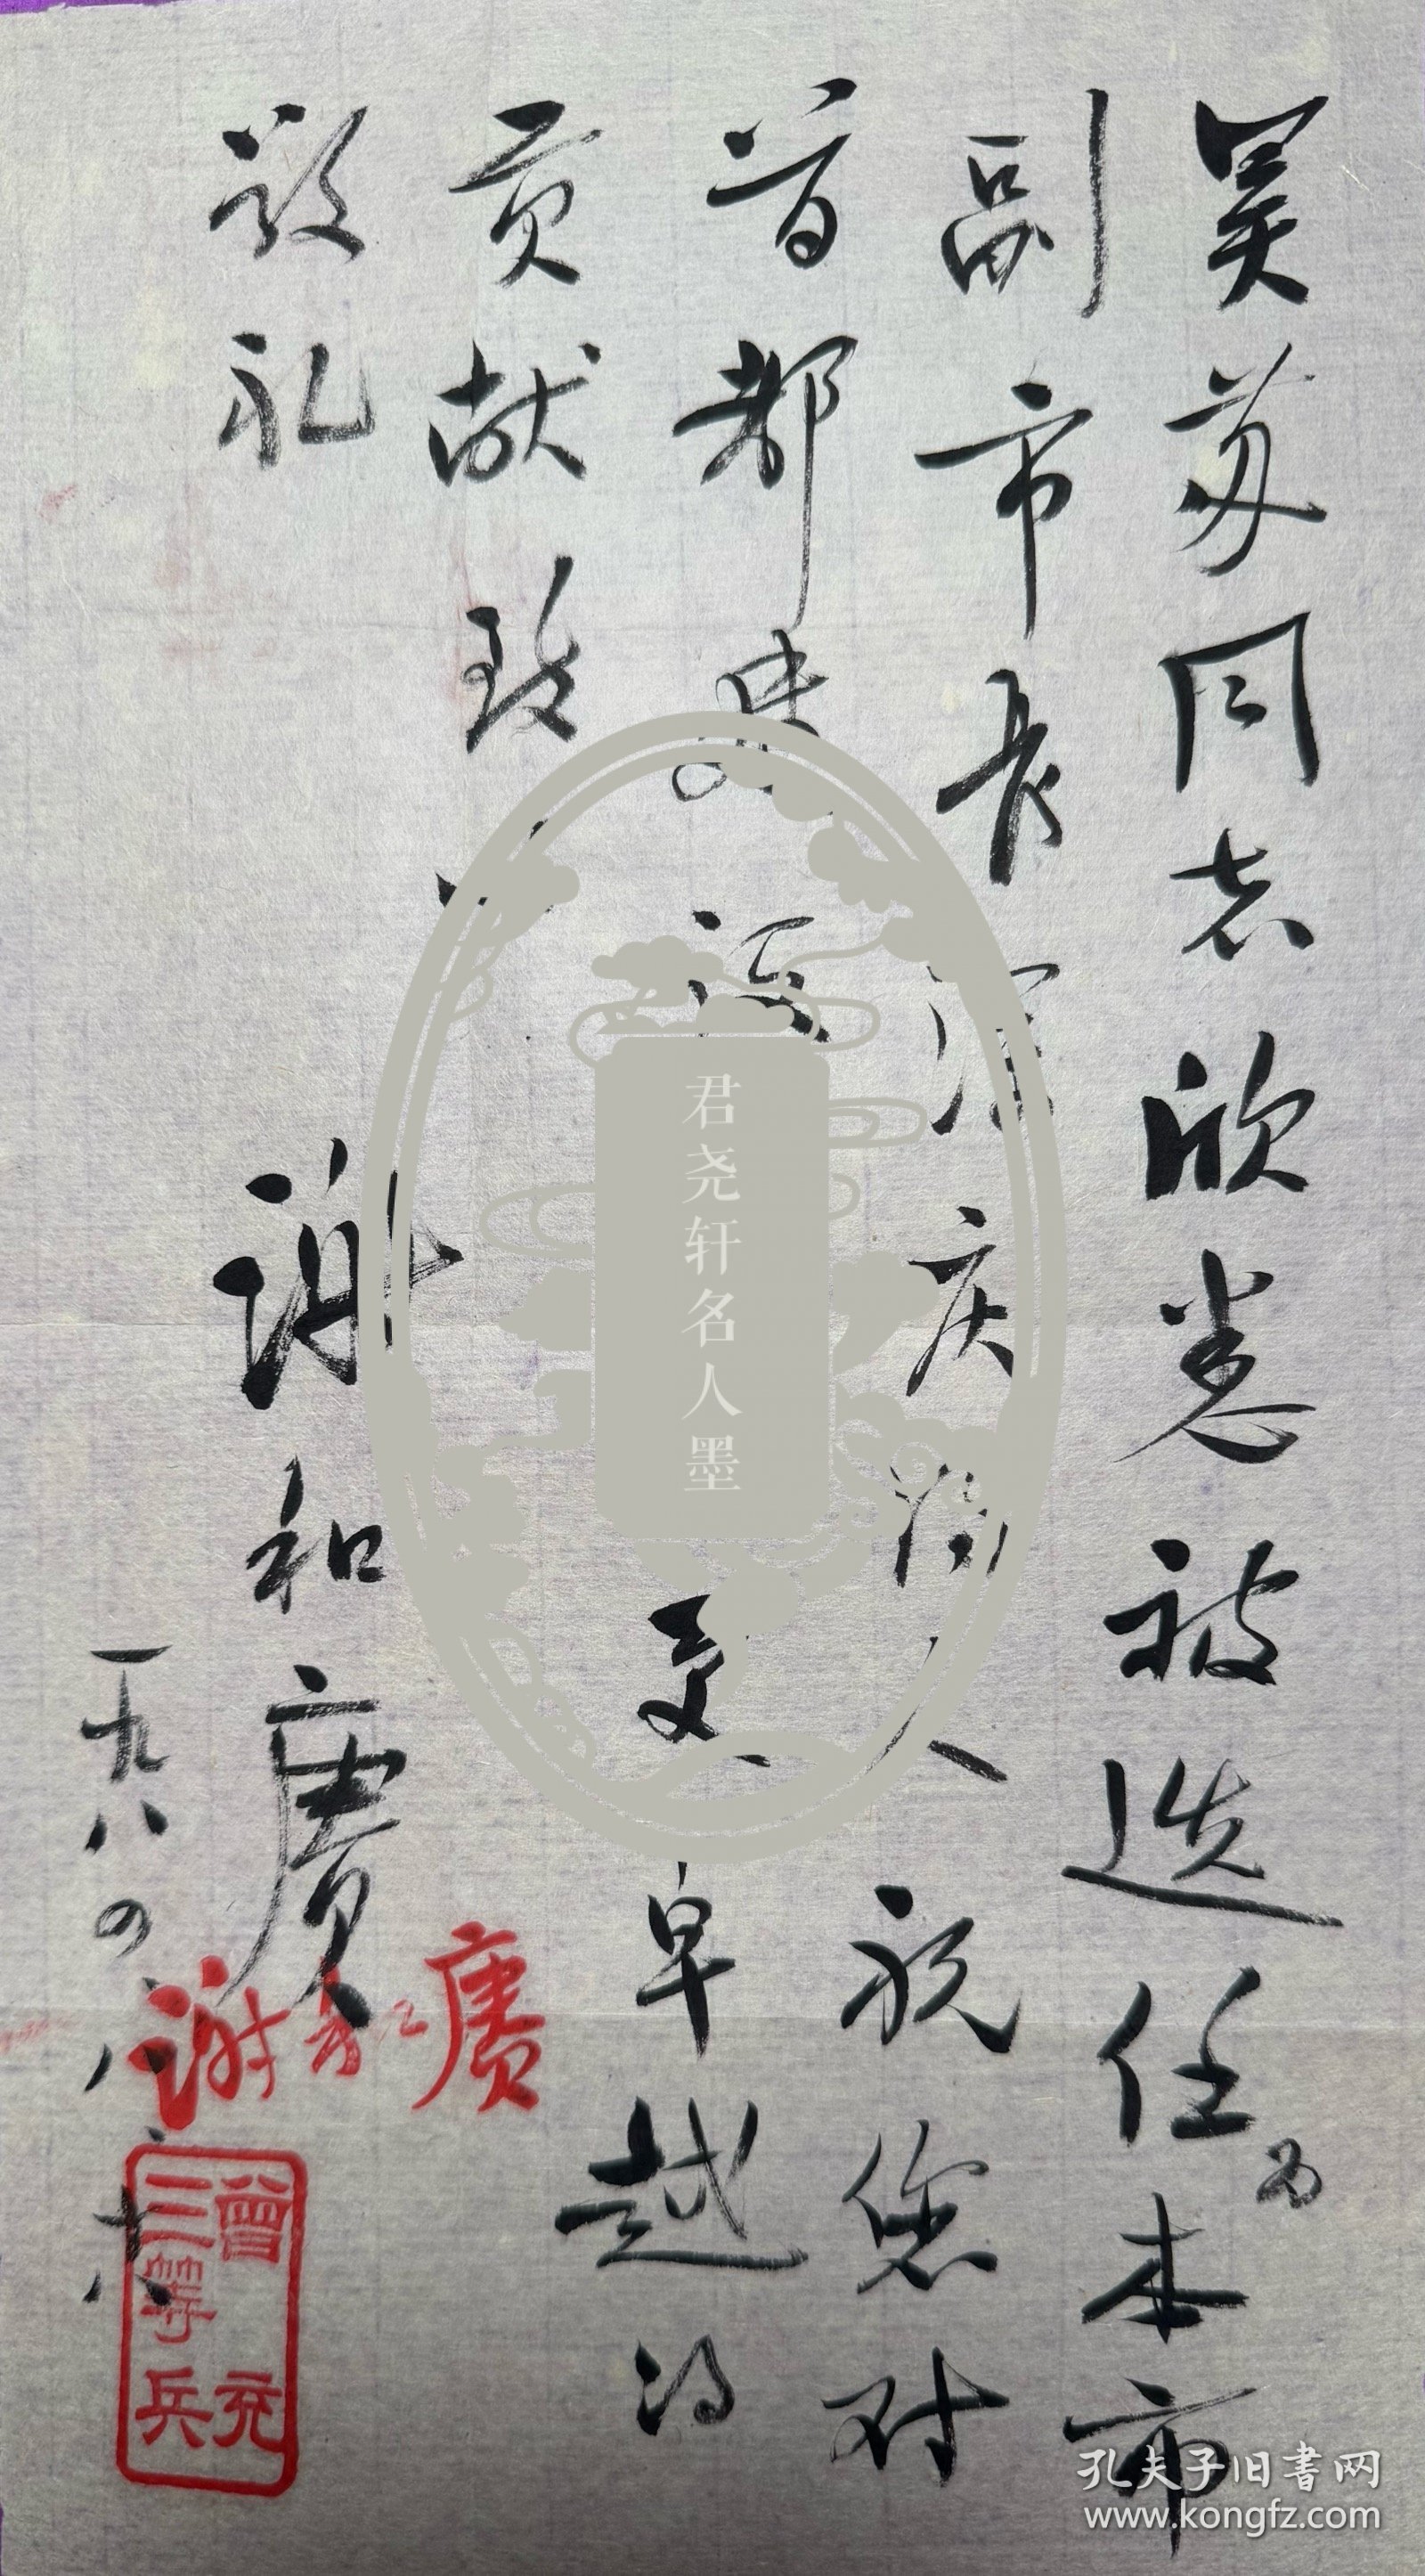 昊苏同志欣悉被选任为本市
副市长深庆得人祝您对
首都建设 更卓越的
贡献致以
敬礼
谢和赓
一九八四、八、十八
谢和赓
曾充
三等兵
君尧轩名人墨
孔夫子旧书网
www.kongfz.com